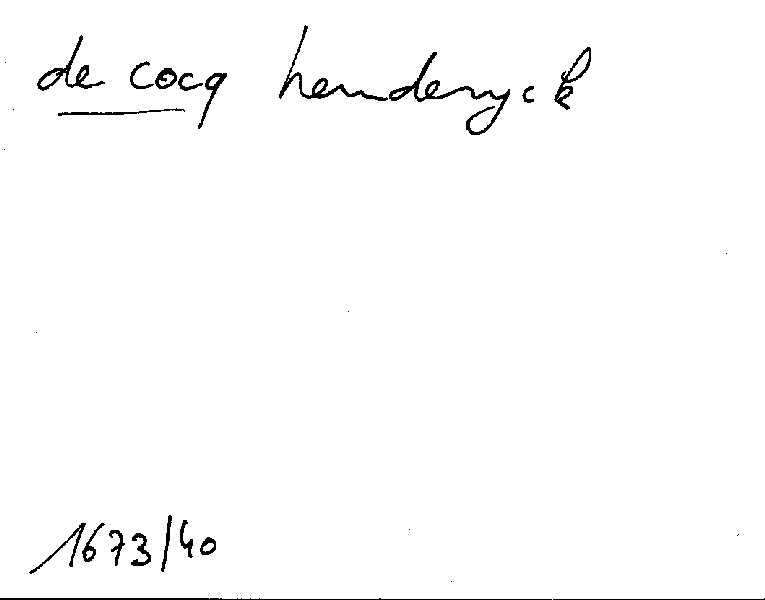 de cocq henderyck
1673/40